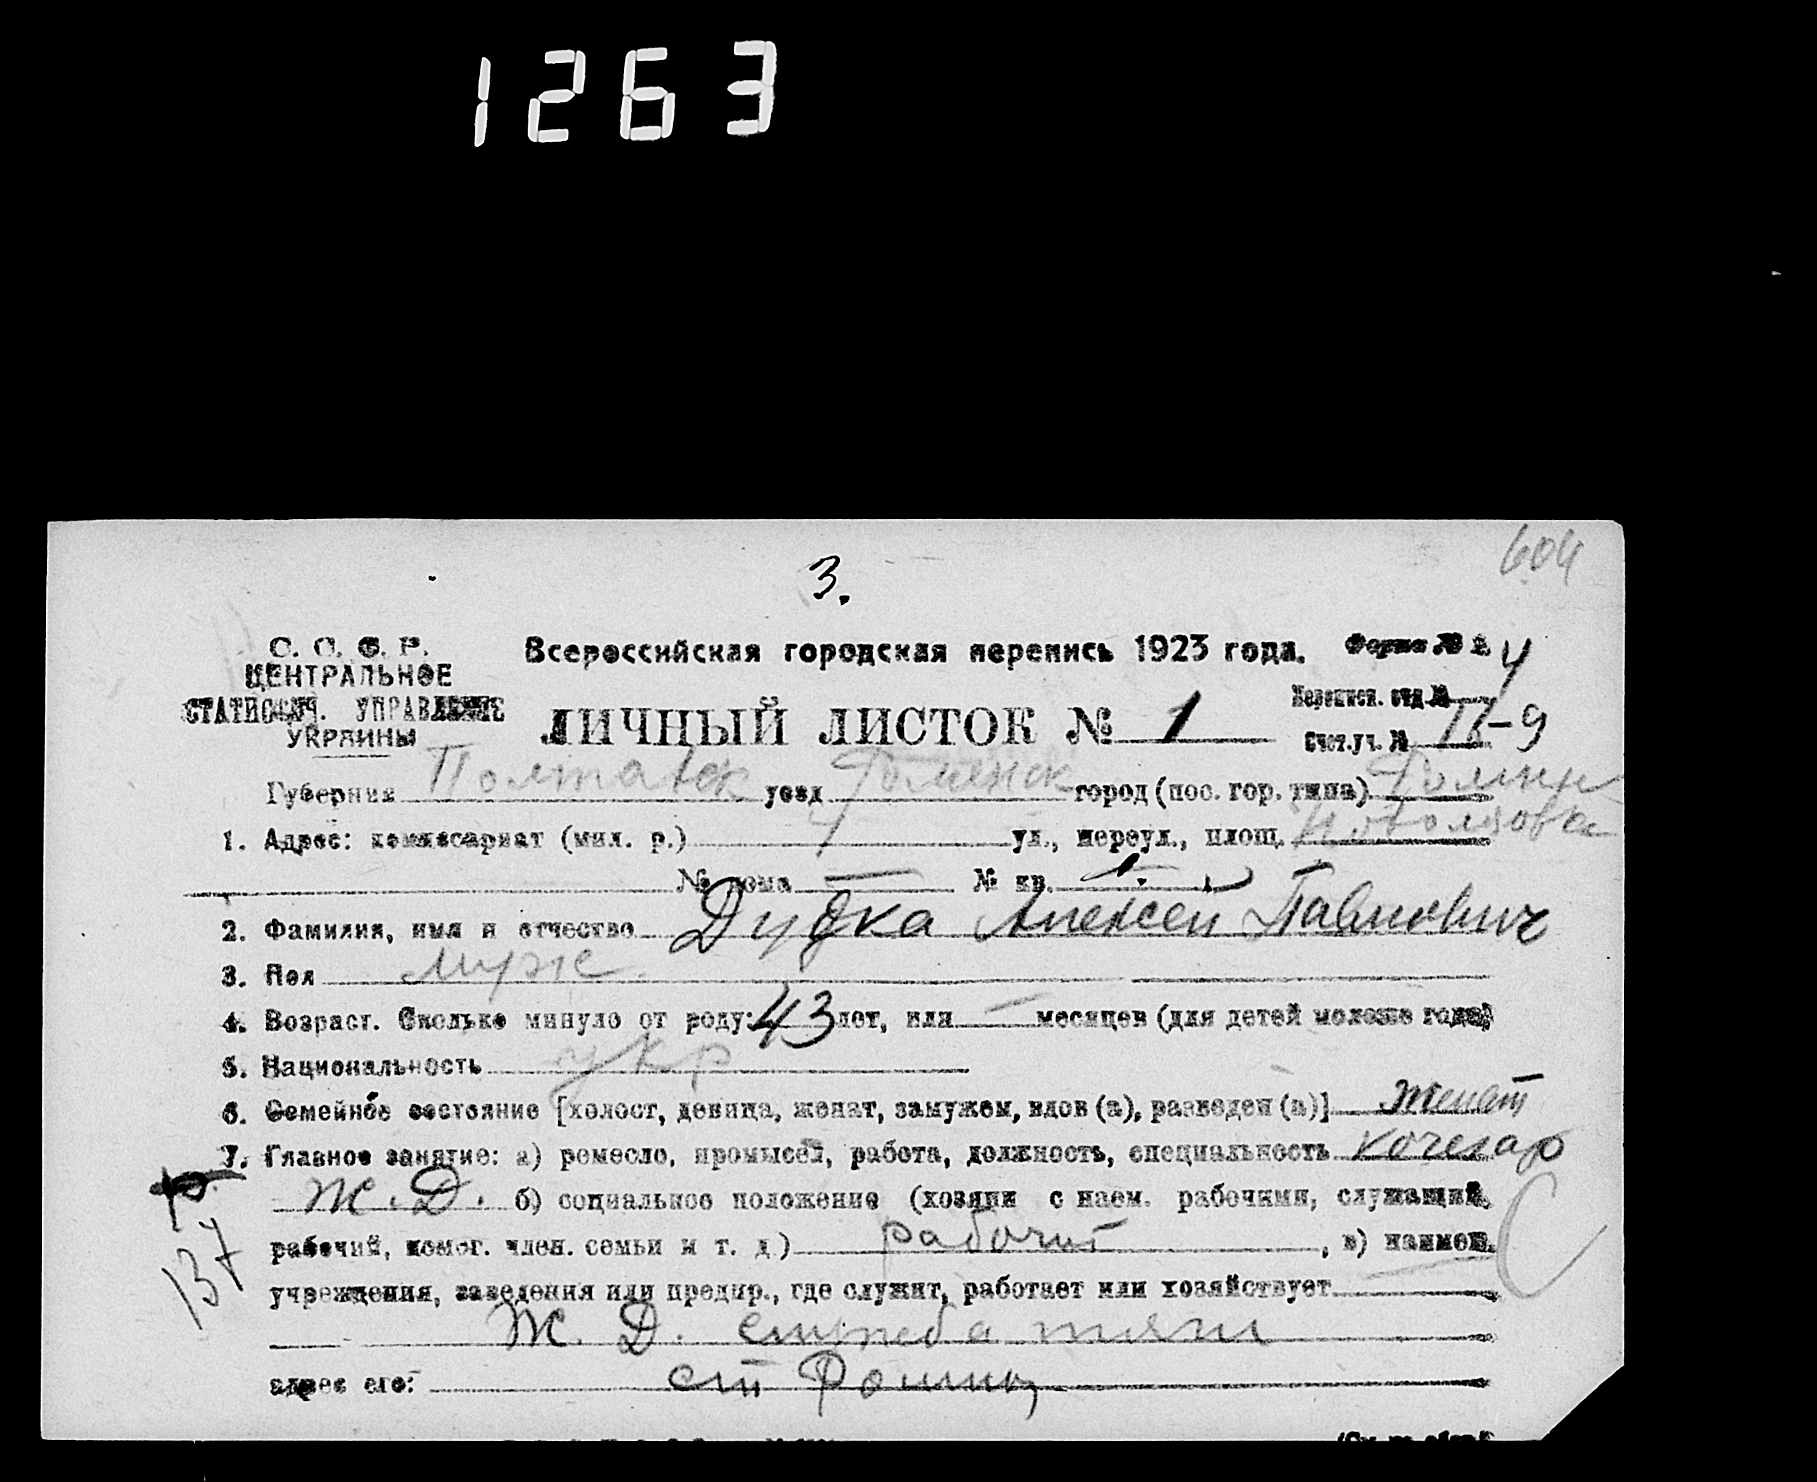 1263
604
3.
С. С. С. Р.
ЦЕНТРАЛЬНОЕ
СТАТИСТИЧ. УПРАВЛЕНИЕ
УКРАИНЫ
Всероссийская городская перепись 1923 года.
Форма № 2.
ЛИЧНЫЙ ЛИСТОК № 1
Переписн. отд № 4
Счет. уч. № 9
Губерния Полтавск уезд Роменск город (пос. гор. типа) Ромны
1. Адрес: комиссариат (мил. р.) ул., переул., площ.
№ дома — № кв. 1.
2. Фамилия, имя и отчество Дудка Алексей Павлович
3. Пол муж.
4. Возраст. Сколько минуло от роду: 43 лет, или — месяцев (для детей моложе года)
5. Национальность укр
6. Семейное состояние [холост, девица, женат, замужем, вдов (а), разведен (а)] женат
7. Главное занятие: а) ремесло, промысел, работа, должность, специальность кочегар
Ж. Д. б) социальное положение (хозяин с наем. рабочими, служащий,
137
рабочий, помог. член. семьи и т. д.) рабочий, в) наимен.
учреждения, заведения или предпр., где служит, работает или хозяйствует
Ж. Д. служба тяги
адрес его: ст Ромны